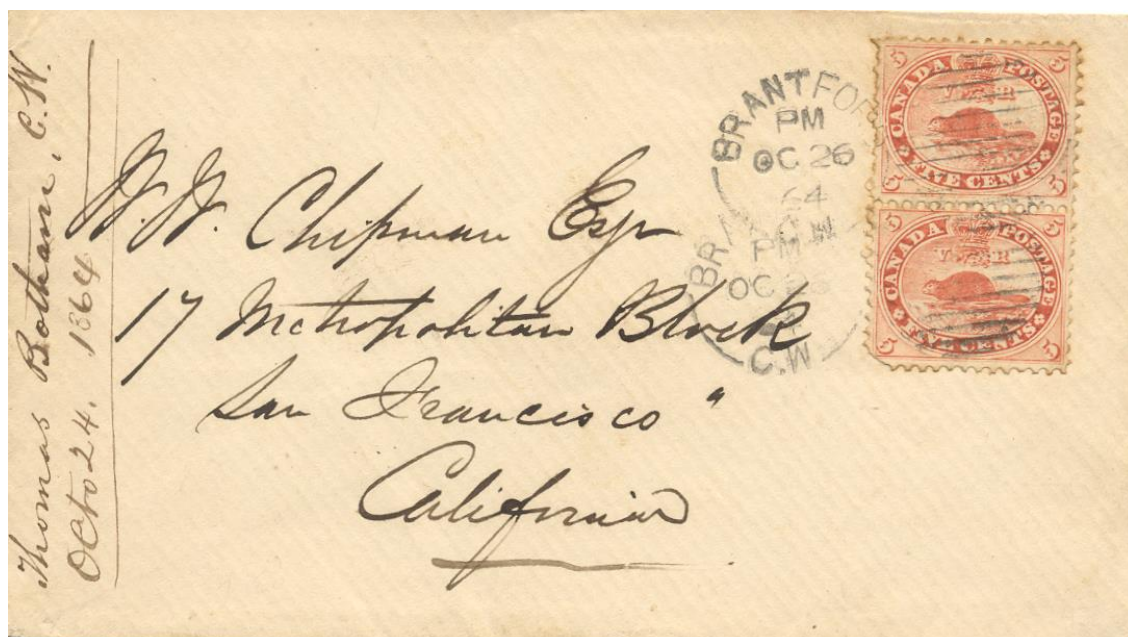 Thomas Botham, C.W.
Octo 24. 1864
W. W. Chipman Esqr
17 Metropolitan Block
San Francisco "
California
BRANTFOR
PM
OC 26
64
C.W
BRA
PM
OC 26
C.W
5 5
CANADA POSTAGE
V R
FIVE CENTS
5 5
5 5
CANADA POSTAGE
V R
FIVE CENTS
5 5